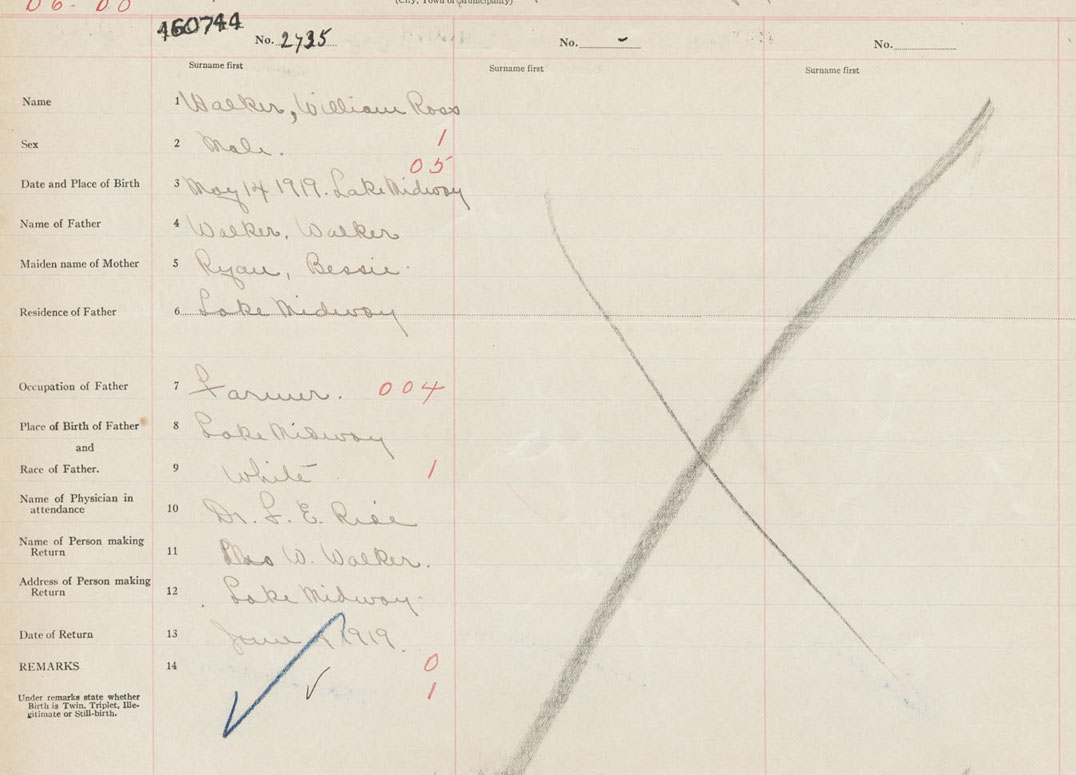 06-00
(City, Town or Municipality)
460744
No. 2735
No. -
No.
Surname first
Surname first
Surname first
Name 1 Walker, William Ross
Sex 2 Male. 1
05
Date and Place of Birth 3 May 14 1919. Lake Midway
Name of Father 4 Walker, Walker
Maiden name of Mother 5 Ryan, Bessie.
Residence of Father 6 Lake Midway
Occupation of Father 7 Farmer. 004
Place of Birth of Father 8 Lake Midway
and
Race of Father. 9 White 1
Name of Physician in
attendance 10 Dr. L. E. Rice
Name of Person making
Return 11 W. Walker.
Address of Person making
Return 12 Lake Midway.
Date of Return 13 June 1919.
REMARKS 14 0
Under remarks state whether 1
Birth is Twin, Triplet, Ille-
gitimate or Still-birth.